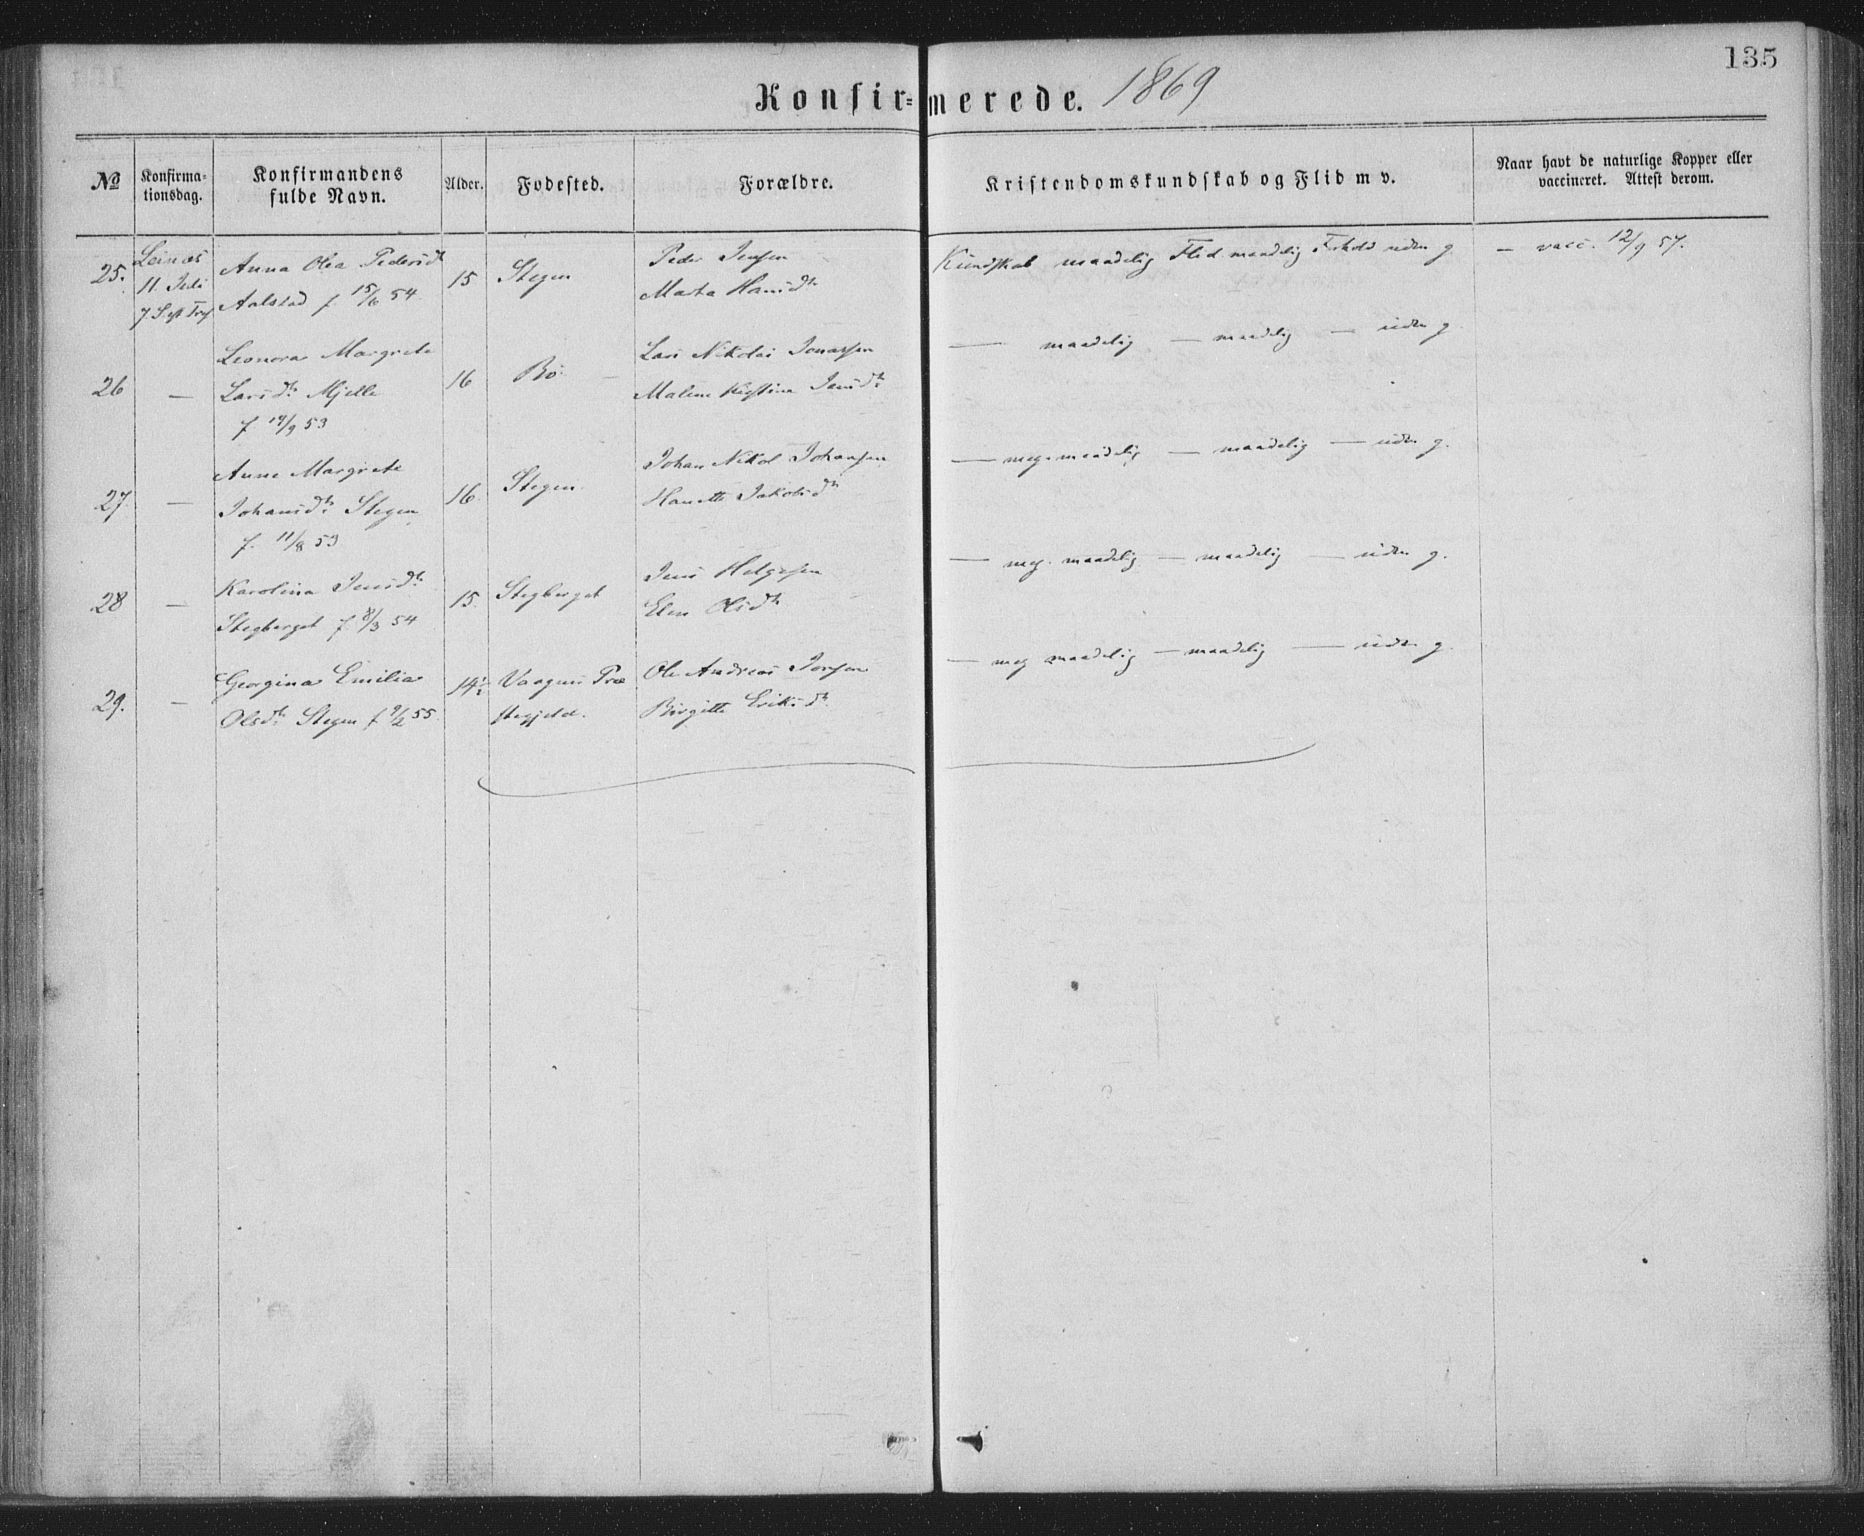 135
Konfir=merede. 1869
No
Konfirma-
tionsdag.
Konfirmandens
fulde Navn.
Alder.
Fodested.
Forældre.
Kristendomskundskab og Flid m v.
Naar havt de naturlige Kopper eller
vaccineret. Attest derom.
25.
Leines
11. Juli
7 S. eft Tref
Anna Olea Pedersdtr
Aalstad f. 15/6 54
15
Stegen
Peder Jensen
Marta Hansdtr
Kundskab maadelig Flid maadelig Forhold uden g
— vacc. 12/9 57.
26
—
Leonora Margrete
Larsdtr Mjelle
f 14/9 53
16
Bö
Lars Nikolai Jonassen
Malene Kristina Jansdtr
— maadelig — maadelig — uden g.
27
—
Anne Margrete
Johansdtr Stegen
f. 11/8 53
16.
Stegen.
Johan Nikol Johansen
Hanette Jakobsdtr
— meg. maadelig — maadelig — uden g.
28
—
Karolina Jensdtr
Stegberget f 8/3 54
15.
Stegberget
Jens Helgesen
Elen Olsdtr
— meg. maadelig — maadelig — uden g.
29.
—
Georgina Emilia
Olsdtr Stegen f 9/2 55
14½
Vaagens Præ
stegjeld.
Ole Andreas
Birgitte Eriksdtr
— meg maadelig — maadelig — uden g.